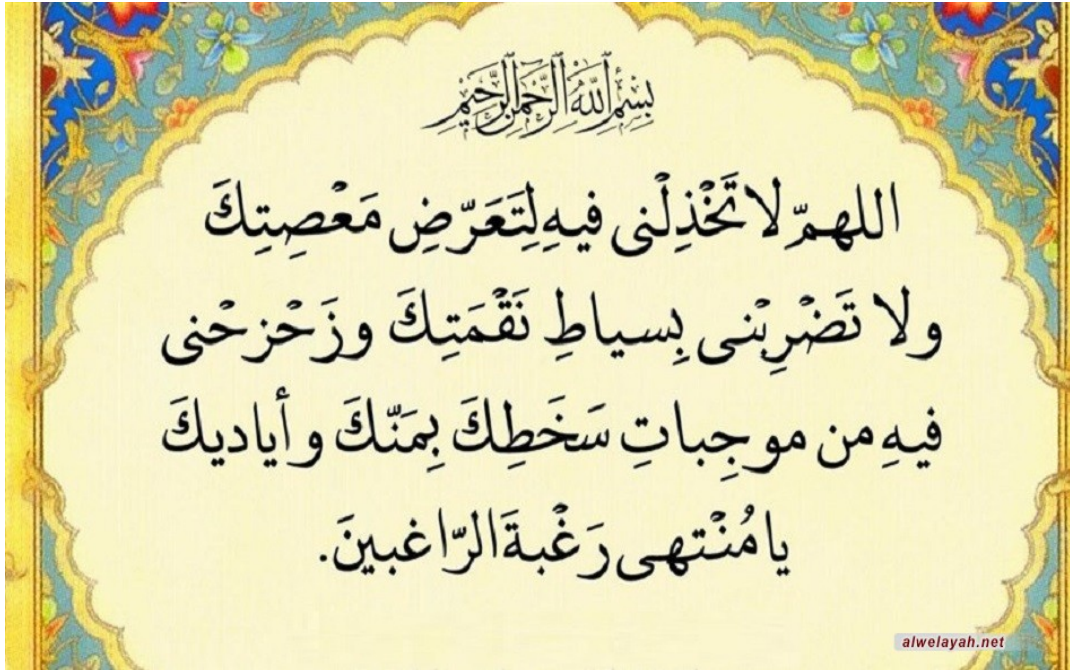 بِسْمِ اللَّهِ الرَّحْمَنِ الرَّحِيمِ
اللهمّ لا تَخْذِلْنى فيهِ لِتَعَرّضِ مَعْصِتِكَ
ولا تَضْرِبْنى بِسياطِ نَقْمَتِكَ وزَحْزحْنى
فيهِ من موجِباتِ سَخَطِكَ بِمَنّكَ وأياديكَ
يا مُنْتهى رَغْبةَ الرّاغبينَ.
alwelayah.net